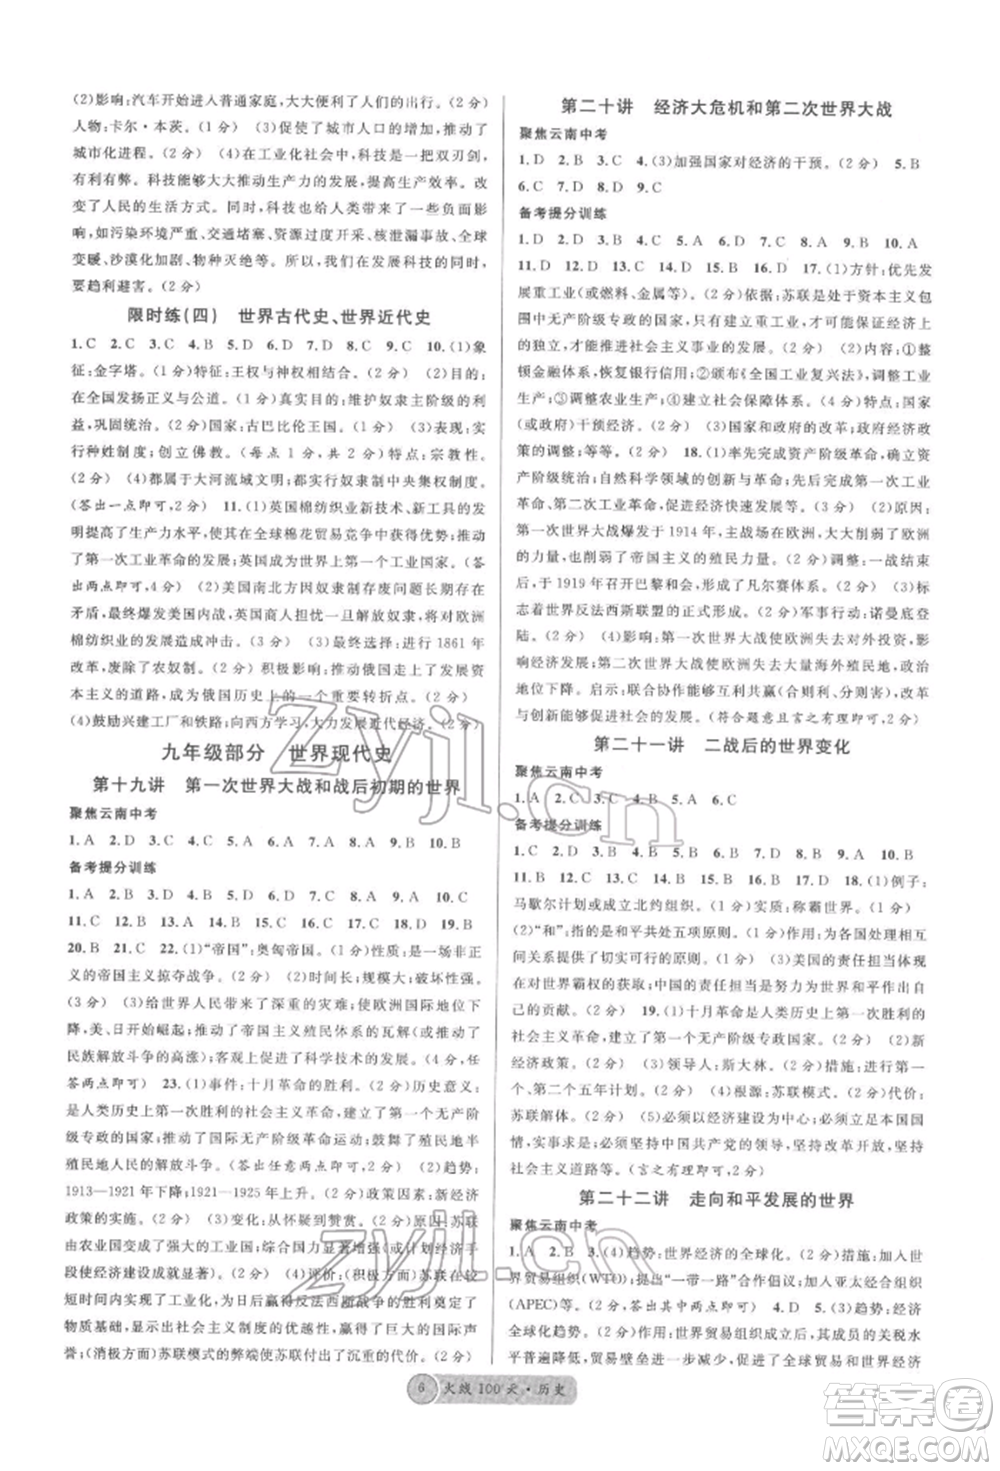 (2)影响:汽车开始进入普通家庭,大大了便利了人们的出行。(2分)
人物:卡尔·本茨。(1分) (3)促使了城市人口的增加,推动了
城市化进程。(2分) (4)在工业化社会中,科技是一把双刃剑,
有利有弊。科技的发展大大推动生产力的发展,提高生产效率。改
变了人民的生活方式。同时,科技的发展也带来了一些负面影
响,如污染环境严重、交通堵塞、资源过多开采、核泄漏事故、全球
变暖、沙漠化加剧、物种灭绝等。所以,我们在发展科技的同时,
要趋利避害。(2分)
限时练(四) 世界古代史、世界近代史
1.C 2.C 3.C 4.B 5.D 6.D 7.B 8.C 9.C 10.(1)象
征:金字塔。(1分)特征:王权与神权相结合。(1分) (2)目的:
在全国发扬正义与公道。(1分)实质:维护奴隶主阶级的利
益,巩固统治。(2分)国家:古巴比伦王国。(1分) (3)表现:实
行种姓制度;创立佛教。(每点1分,共2分)特点:宗教性。
(2分) (4)都属于大河流域文明;都实行奴隶制中央集权制度。
(答出一点即可,2分) 11.(1)英国棉纺织业新技术、新工具的发
明提高了生产力水平,并促使其在全球棉花贸易竞争中获胜;
第一次工业革命的发展使其成为世界上第一个工业国家。(答
出一点即可,2分) (2)美国南北方因奴隶制存废问题长期存在
矛盾,最终爆发美国内战,英国商人担忧一旦解放奴隶,将对欧洲
棉纺织业的发展造成冲击。(3分) (3)最终选择:进行1861年
改革,废除了农奴制。(1分)积极影响:推动俄国走上了发展资
本主义的道路,成为俄国历史上的一个重大转折点。(2分)
(4)鼓励兴建工厂和铁路;向西方学习,大力发展近代经济。(2分)
九年级部分 世界现代史
第十九讲 第一次世界大战和战后初期的世界
聚焦云南中考
1.A 2.D 3.D 4.D 5.C 6.D 7.A 8.A 9.B 10.A
备考提分训练
1.A 2.D 3.D 4.D 5.B 6.A 7.B 8.A 9.D 10.C
11.C 12.B 13.D 14.D 15.A 16.C 17.D 18.D 19.B
20.B 21.C 22.(1)“帝国”:奥匈帝国。(1分)性质:是一场非正
义的帝国主义掠夺战争。(2分) (2)特点:规模大;破坏性强。
(2分) (3)给世界人民带来了深重的灾难;使欧洲国际地位下
降,美、日开始崛起;有利于帝国主义殖民体系的瓦解(或推动了
民族解放斗争的高涨);客观上促进了科学技术的发展。(答出
其中两点即可) 23.(1)事件:十月革命的胜利。(1分)历史意义:
是人类历史上第一次胜利的社会主义革命,建立了第一个无产阶
级专政的国家;推动了国际无产阶级革命运动;鼓舞了殖民地半
殖民地人民的解放斗争。(答出任意两点即可,2分) (2)趋势:
1913—1921年下降;1921—1925年上升。(1分)政策:新经济
政策的实施。(2分) (3)变化:从讽刺到赞赏。(2分)原因:苏联
成为了强大的工业国;综合国力显著增强(或计划经济手
段使经济发展)。(2分) (4)评价:(积极方面)苏联模式使苏联在较
短时间内实现了工业化,为日后赢得反法西斯战争的胜利奠定了
物质基础,显示出社会主义制度的优越性,赢得了巨大的国际声
誉;(消极方面)苏联模式的弊端使苏联付出了沉重的代价。(2分)
第二十讲 经济大危机和第二次世界大战
聚焦云南中考
1.D 2.B 3.C 4.(3)加强国家对经济的干预。(2分) 5.B
6.C 7.D 8.D 9.C
备考提分训练
1.D 2.D 3.C 4.D 5.B 6.D 7.B 8.A 9.B 10.A
11.D 12.D 13.D 14.D 15.C 16.D 17.(1)方针:优先发
展重工业(或燃料、金属等)。(2分)依据:苏联是资本主义包
围中无产阶级专政的国家,只有建立重工业,才可能保证经济上
的独立,才能推进社会主义事业的发展。(2分) (2)内容:①整
顿金融体系,恢复银行信用;②颁布《全国工业复兴法》,调整工
业;③调整农业生产;④建立社会保障体系。(2分)作用:国家
(或政府)干预经济。(2分) (3)观点:政府对经济的发展要有一定的政
策的调整;等等。(2分) 18.(1)率先完成资产阶级革命,确立资
产阶级统治;自然科学领域的创新与革命;先后完成第一次工业
革命、第二次工业革命,经济快速发展。(2分) (2)原因:
第一次世界大战爆发于1914年,主战场在欧洲,大大削弱了欧洲
的力量,也削弱了帝国主义的殖民力量。(2分)调整:一战结束
后,于1919年召开巴黎和会,形成了凡尔赛体系。(2分) (3)标
志着世界反法西斯联盟的正式形成。(2分)军事行动:诺曼底登
陆。(1分) (4)影响:第一次世界大战使欧洲失去对外投资,影
响创新与发展;第二次世界大战使欧洲失去大量海外殖民地,政治
地位下降。启示:联合协作能互利共赢(或合则利、分则害),改革
与创新能够促进社会发展。(符合题意且言之有理即可,2分)
第二十一讲 二战后的世界变化
聚焦云南中考
1.A 2.A 3.D 4.B 5.A 6.C
备考提分训练
1.C 2.B 3.D 4.B 5.C 6.D 7.D 8.A 9.A 10.B
11.D 12.A 13.B 14.A 15.B 16.D 17.A 18.(1)例子:
马歇尔计划或成立北约组织。(1分)实质:称霸世界。(2分)
(2)“和”:指的是和平共处五项原则。(1分)作用:为中国与世
界的合作提供了基础。(2分) (3)美国的选择阻碍了世界的发
展,世界霸权的获取;中国选择为世界和平及发展作出自
己的贡献。(2分) 19.(1)十月革命是人类历史上第一次胜利的
社会主义革命,建立了第一个无产阶级专政国家。(2分) (2)新
经济政策。(2分) (3)领导人:斯大林。(1分)措施:实施了第
一、第二个五年计划。(2分) (4)根源:苏联模式。(2分)代价:
苏联解体。(1分) (5)必须以经济建设为中心;必须立足本国国
情,实事求是;必须坚持中国共产党的领导,坚持改革开放,坚持
社会主义道路等。(言之有理即可,2分)
第二十二讲 走向和平发展的世界
聚焦云南中考
1.A 2.D 3.B 4.(4)趋势:世界经济的全球化。(2分)措施:加入世
界贸易组织(WTO);实施“一带一路”合作倡议;加入亚太经合组织
(APEC)等。(2分,答出其中两点即可) 5.(3)作用:推动经济
全球化发展。(2分)表现:世界贸易组织成立后,成员的关税水
平普遍降低,贸易壁垒进一步减少,促进了全球贸易和世界经济
6 火线100天·历史
zyjl.cn
zyjl.cn
答案圈
MXQE.COM